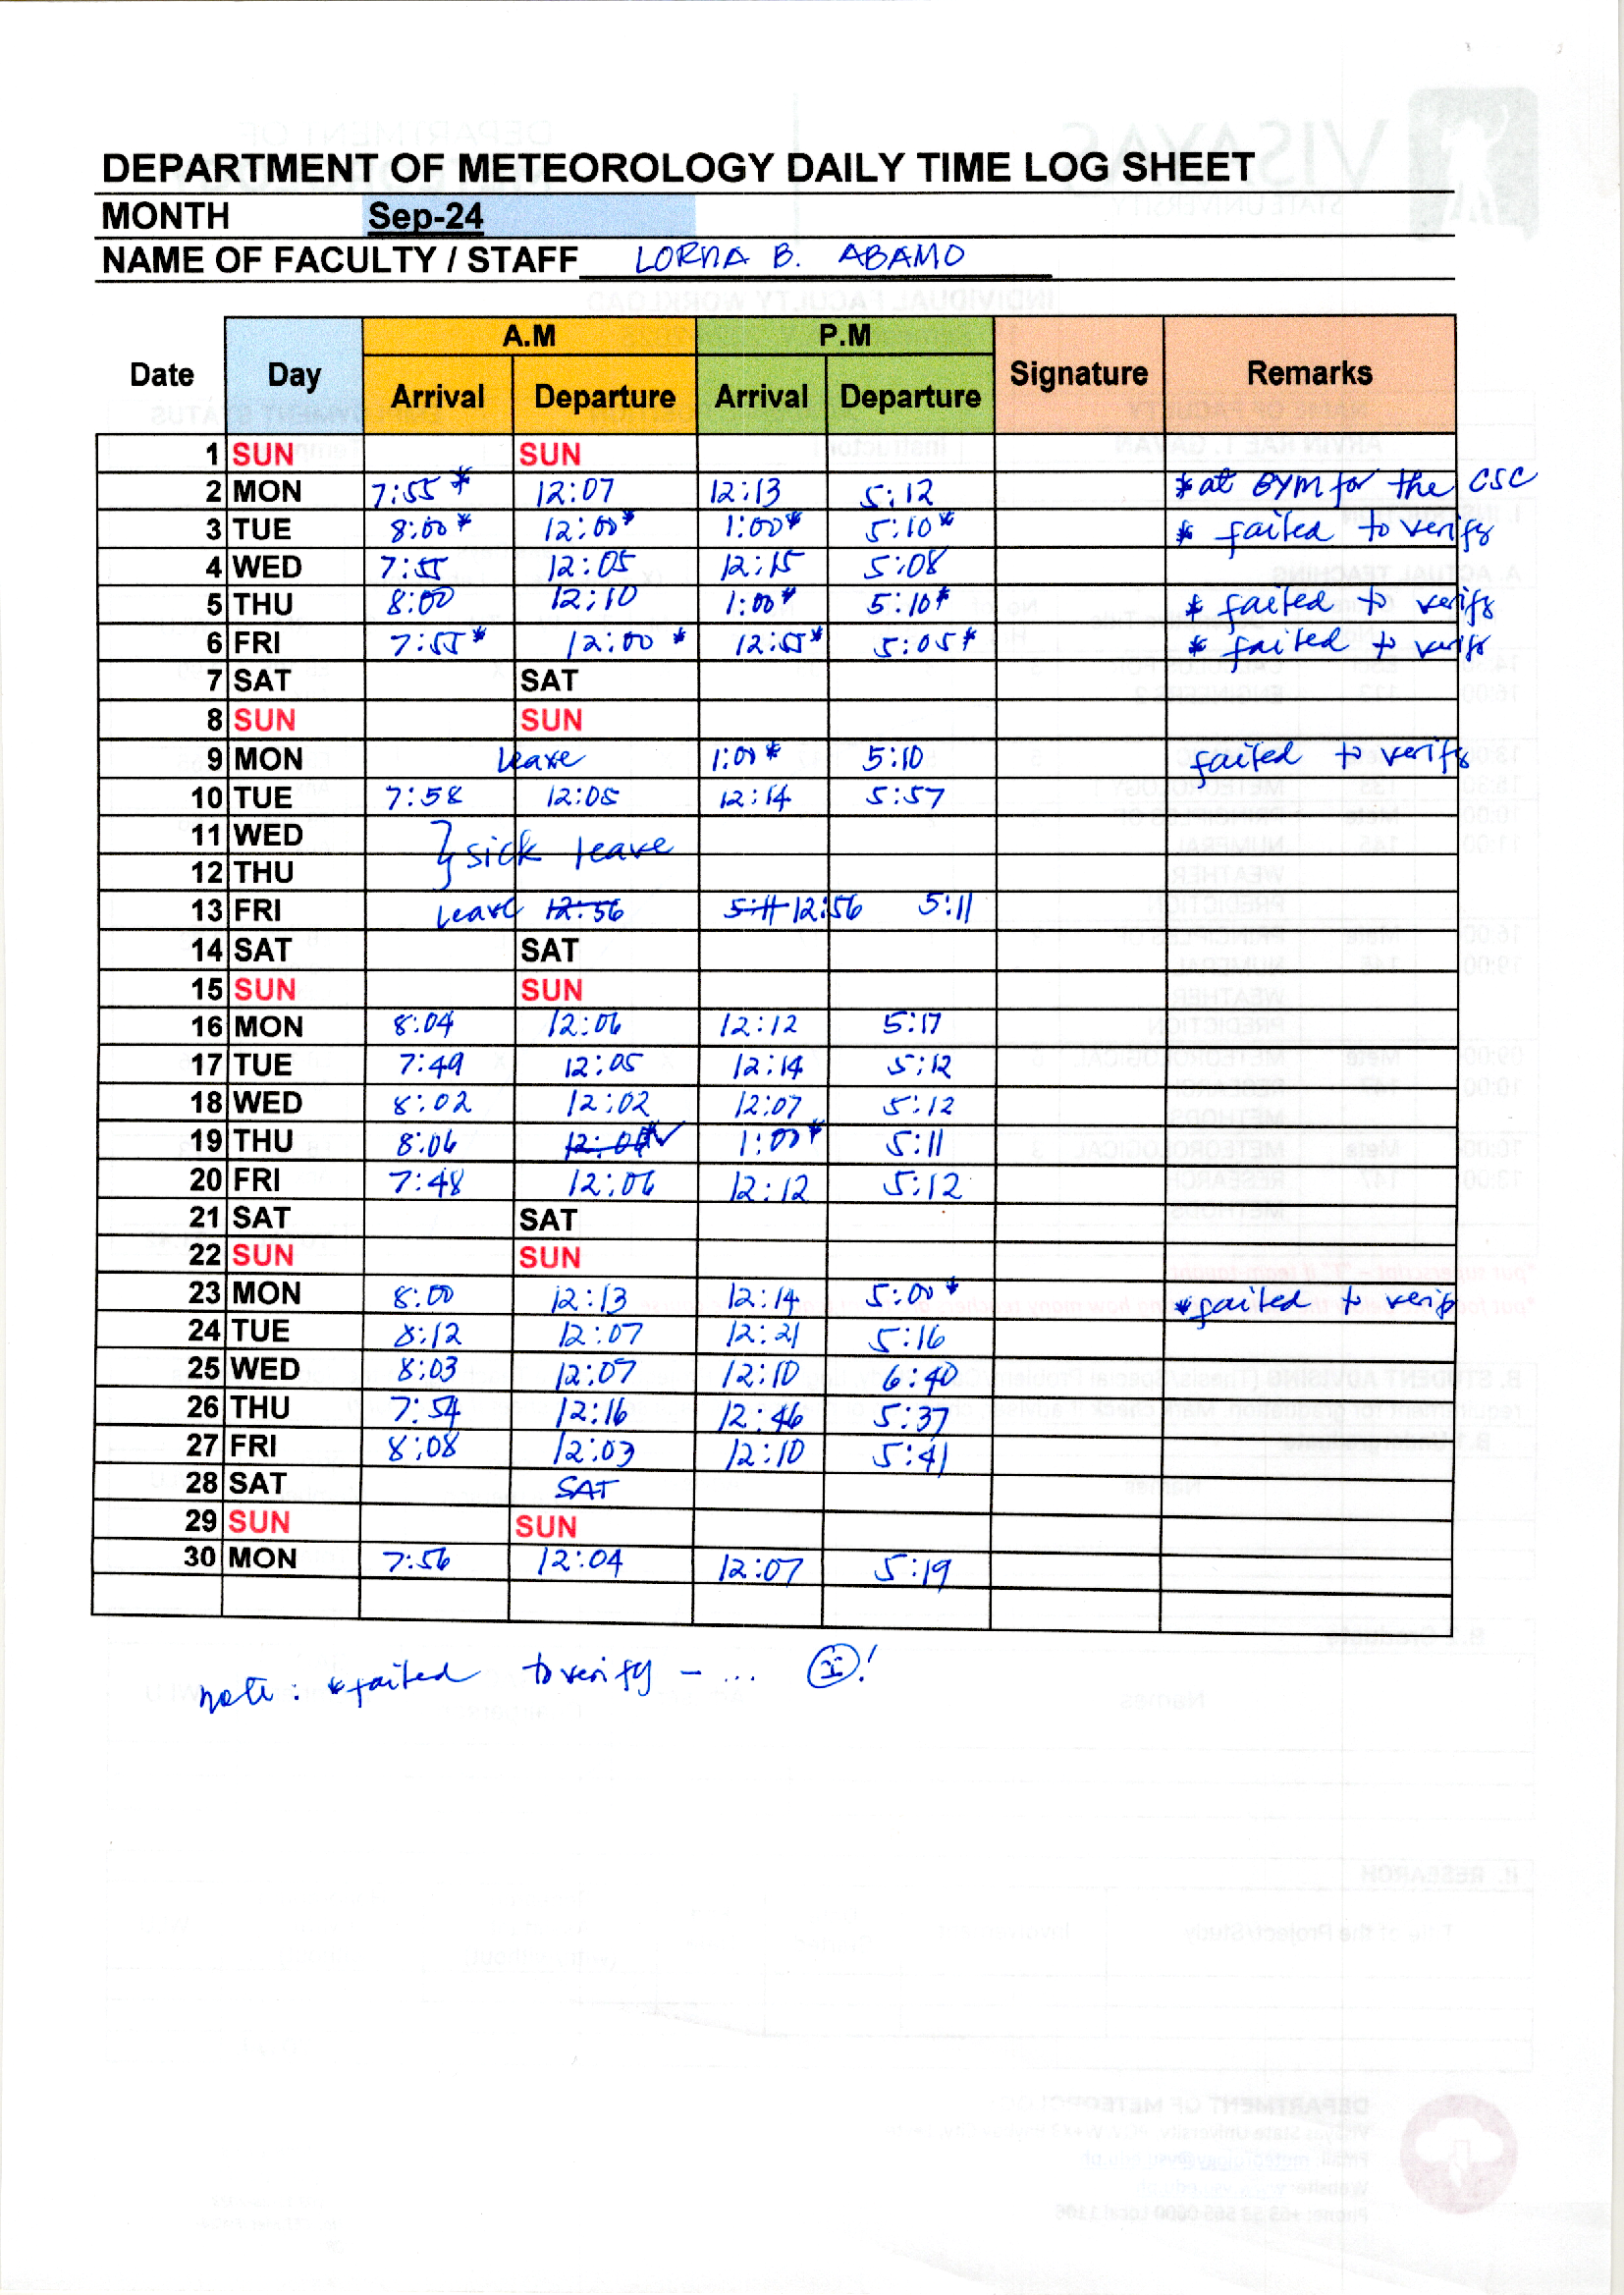 DEPARTMENT OF METEOROLOGY DAILY TIME LOG SHEET
MONTH Sep-24
NAME OF FACULTY / STAFF LORNA B. ABAMO
A.M P.M
Date Day Arrival Departure Arrival Departure Signature Remarks
1 SUN SUN
2 MON 7:55 * 12:07 12:13 5:12 * at GYM for the CSC
3 TUE 8:00 * 12:00 * 1:00 * 5:10 * * failed to verify
4 WED 7:55 12:05 12:15 5:08
5 THU 8:00 12:10 1:00 * 5:10 * * failed to verify
6 FRI 7:55 * 12:00 * 12:55 * 5:05 * * failed to verify
7 SAT SAT
8 SUN SUN
9 MON leave 1:00 * 5:10 failed to verify
10 TUE 7:58 12:05 12:14 5:57
11 WED } sick leave
12 THU
13 FRI leave 12:56 5:11 12:56 5:11
14 SAT SAT
15 SUN SUN
16 MON 8:04 12:06 12:12 5:17
17 TUE 7:49 12:05 12:14 5:12
18 WED 8:02 12:02 12:07 5:12
19 THU 8:06 1:00 * 5:11
20 FRI 7:48 12:06 12:12 5:12
21 SAT SAT
22 SUN SUN
23 MON 8:00 12:13 12:14 5:00 * * failed to verify
24 TUE 8:12 12:07 12:21 5:16
25 WED 8:03 12:07 12:10 6:40
26 THU 7:54 12:16 12:46 5:37
27 FRI 8:08 12:03 12:10 5:41
28 SAT SAT
29 SUN SUN
30 MON 7:56 12:04 12:07 5:19
note : * failed to verify - ... !